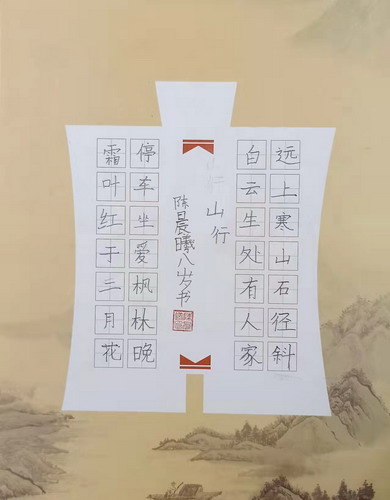 远上寒山石径斜
白云生处有人家
山行
陈晨曦八岁书
停车坐爱枫林晚
霜叶红于二月花